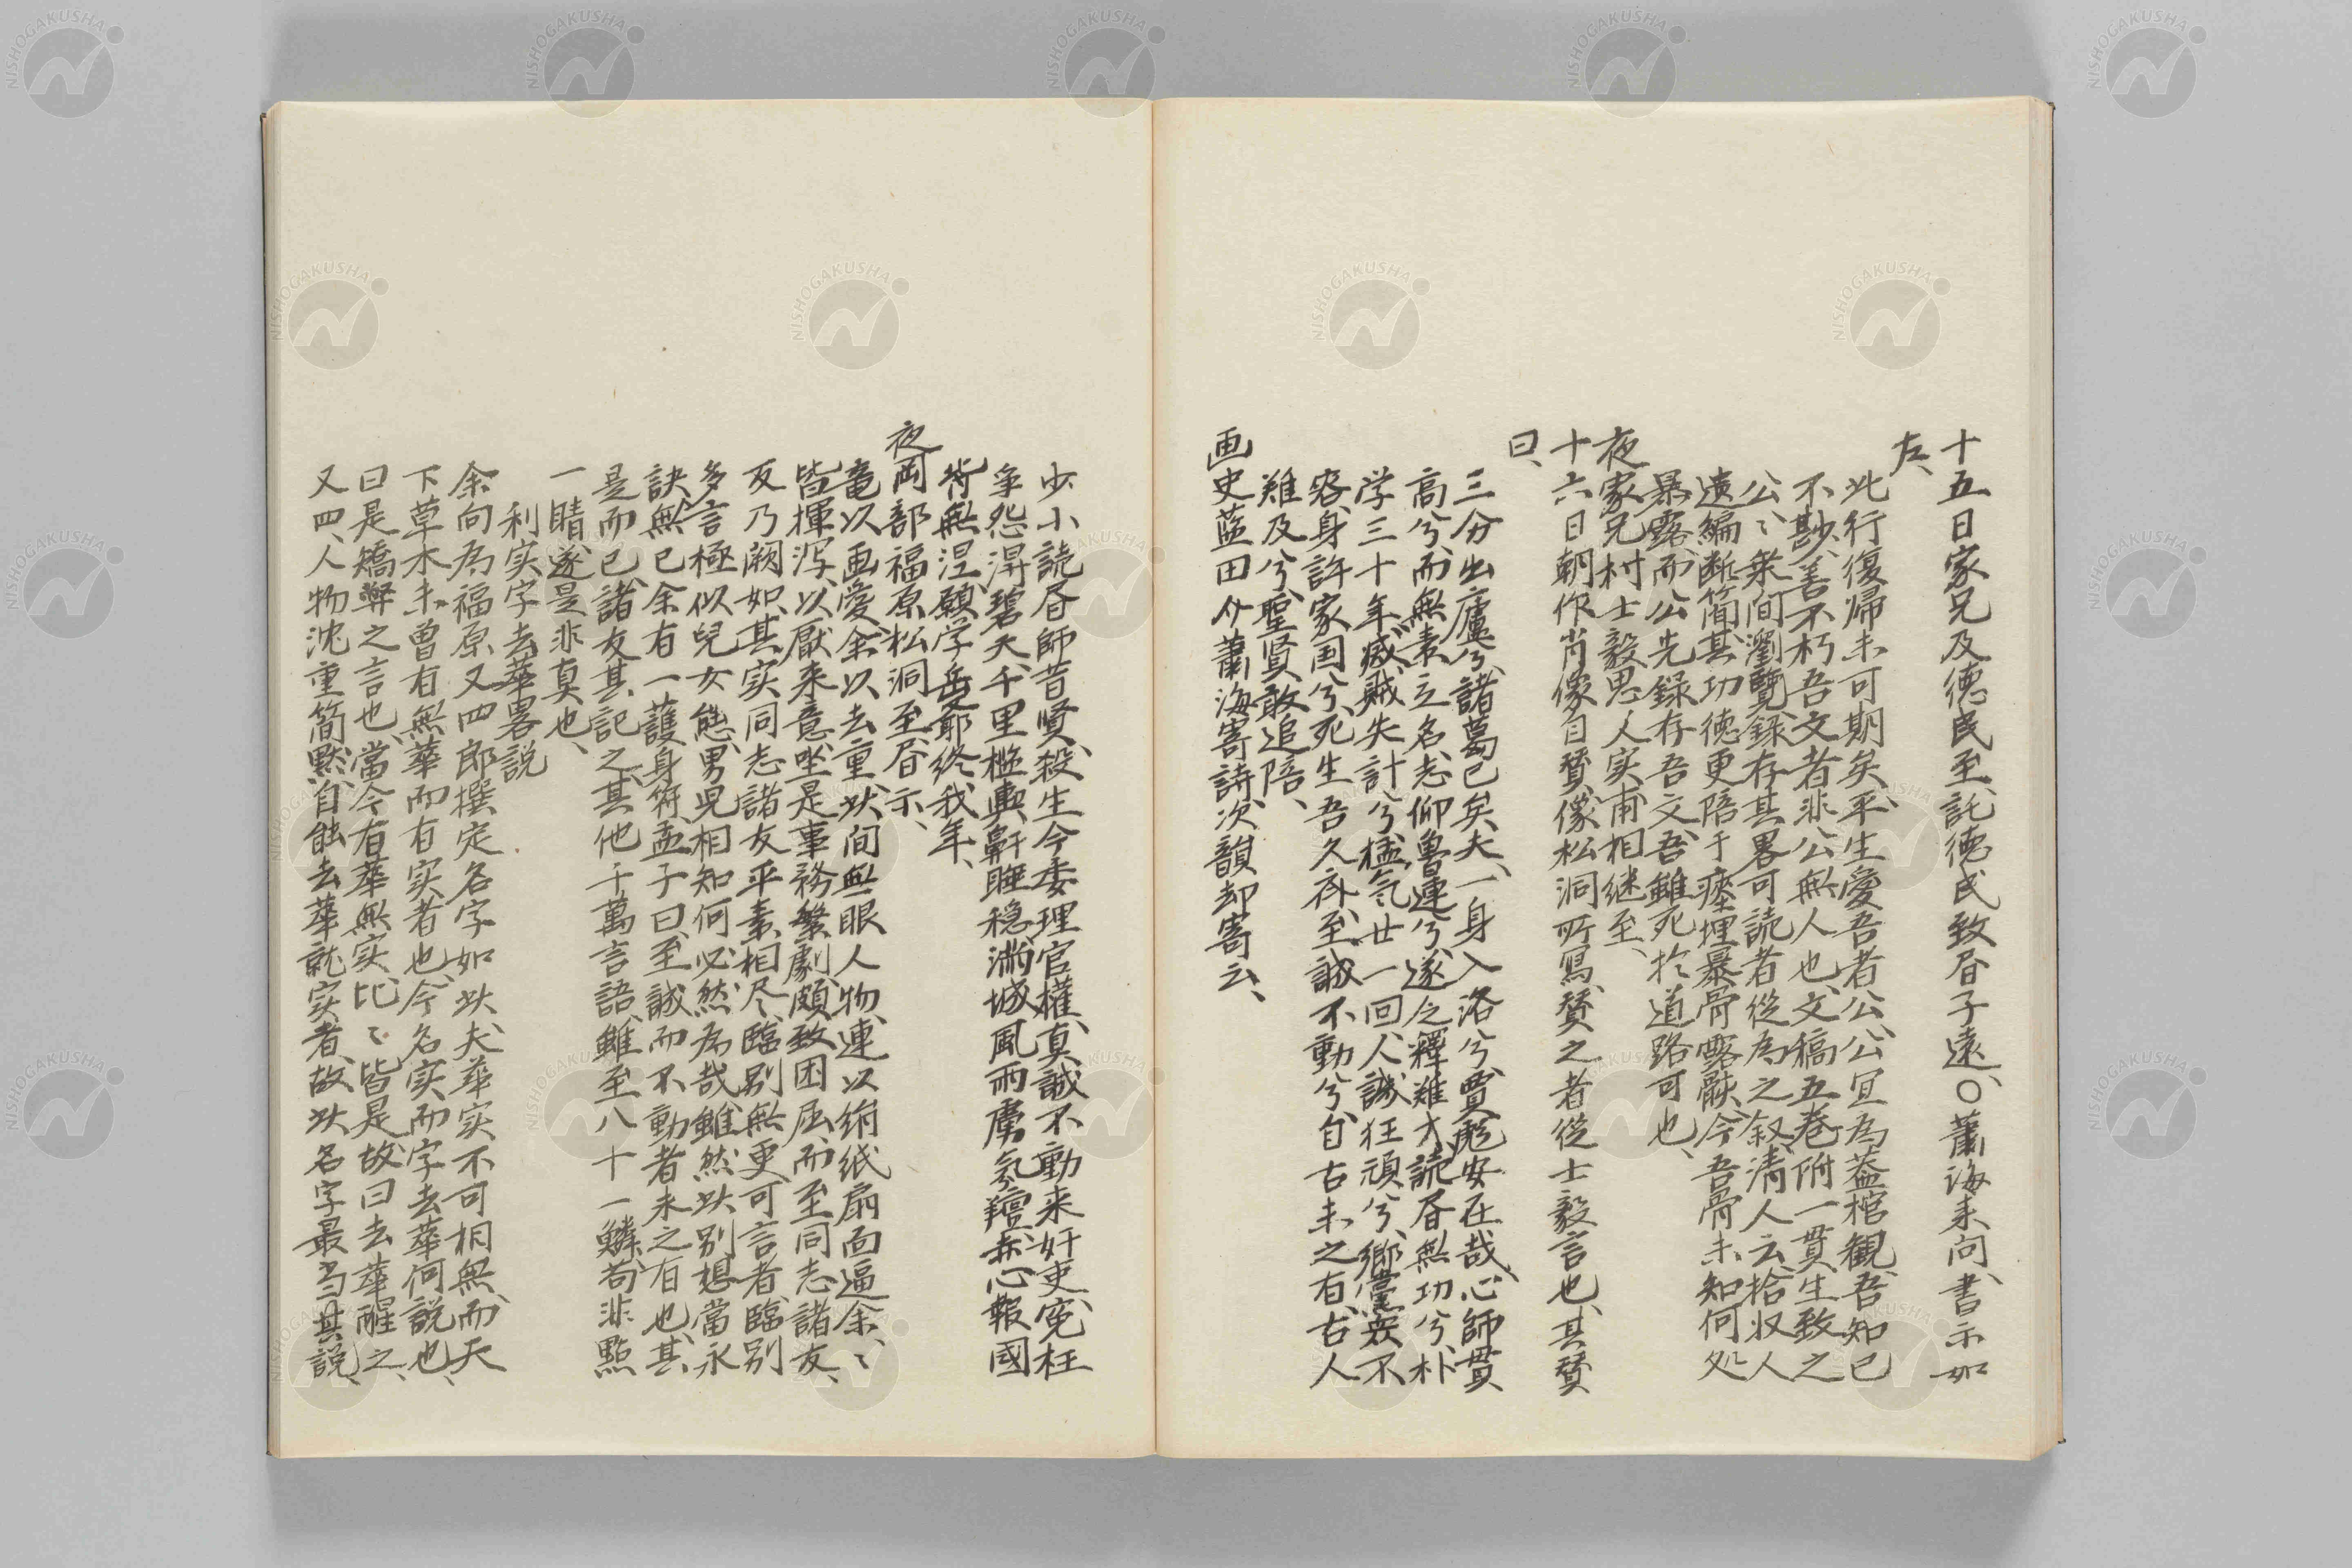 十五日家兄及徳民至、託徳民致昏子遠、〇蕭海来問、書示如
左、
此行復帰未可期矣、平生愛吾者公、公宜為蓋棺観、吾知已
不尠、善不朽吾文者、非公無人也、文稿五巻附一貫生致之
公、〻乗間瀏覽、録存其畧可読者、従為之叙、清人云、拾収人
遺編断簡、其功徳更陪于瘞埋暴骨露骸、今吾骨未知何処
暴露、而公先録存吾文、吾雖死於道路可也、
夜家兄村士毅思人実甫相継至、
十六日朝作肖像自賛、像松洞所写、賛之者従士毅言也、其賛
曰、
三分出廬兮、諸葛已矣夫、一身入洛兮、賈彪安在哉、心師貫
高兮、而無素立名、志仰魯連兮、遂乏釋難才、読昏無功兮、朴
学三十年、滅賊失計兮、猛気廿一回、人譏狂頑兮、郷黨衆不
容、身許家国兮、死生吾久斉、至誠不動兮、自古未之有、古人
難及兮、聖賢敢追陪、
画史藍田少蕭海寄詩、次韻却寄云、
少小読昏師昔賢、殺生今委理官權、真誠不動来奸吏、寃枉
争怨渭碧天、千里檻輿鼾睡穏、満城風雨虜氛羶、赤心報國
背無涅、願学岳爺終我年、
夜岡部福原松洞至、昏示、
竜以画愛余、以去重、此間無眼人物、連以絹紙扇面逼余、〻
皆揮泻、以厭来意、坐是事務繁劇、頗致困屈、而至同志諸友、
反乃闕如、其実同志諸友、平素相尽、臨別無更可言者、臨別
多言、極似兒女態、男児相知何必然為哉、雖然此別想當永
訣、無已余有一護身符、孟子曰、至誠而不動者未之有也、其
是而已、諸友其記之、其他千萬言語、雖至八十一鱗、苟非點
一睛、遂是非真也、
利実字去華畧説
余向為福原又四郎撰定名字如此、夫華実不可相無、而天
下草木未曾有無華而有実者也、今名実而字去華何説也、
曰是矯弊之言也、當今有華無実、比〻皆是、故曰去華醒之、
又四、人物沈重簡黙、自能去華就実者、故此名字最当其説、